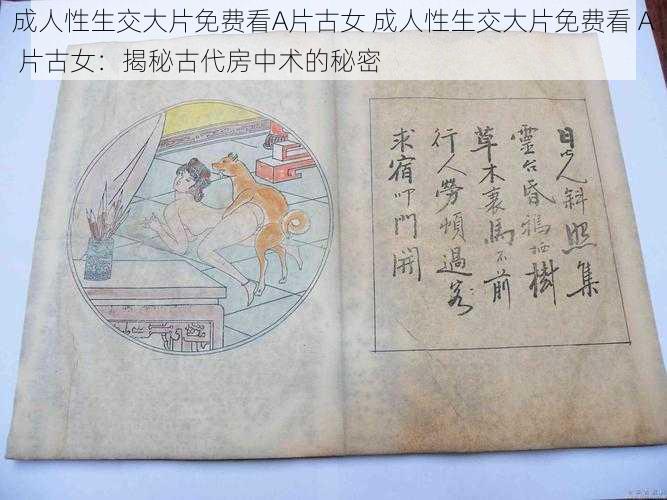 成人性生交大片免费看A片古女 成人性生交大片免费看 A
片古女：揭秘古代房中术的秘密
日人斜照集
靈台昏鴉抽樹
草木裏馬不前
行人勞頓過客
求宿叩門開